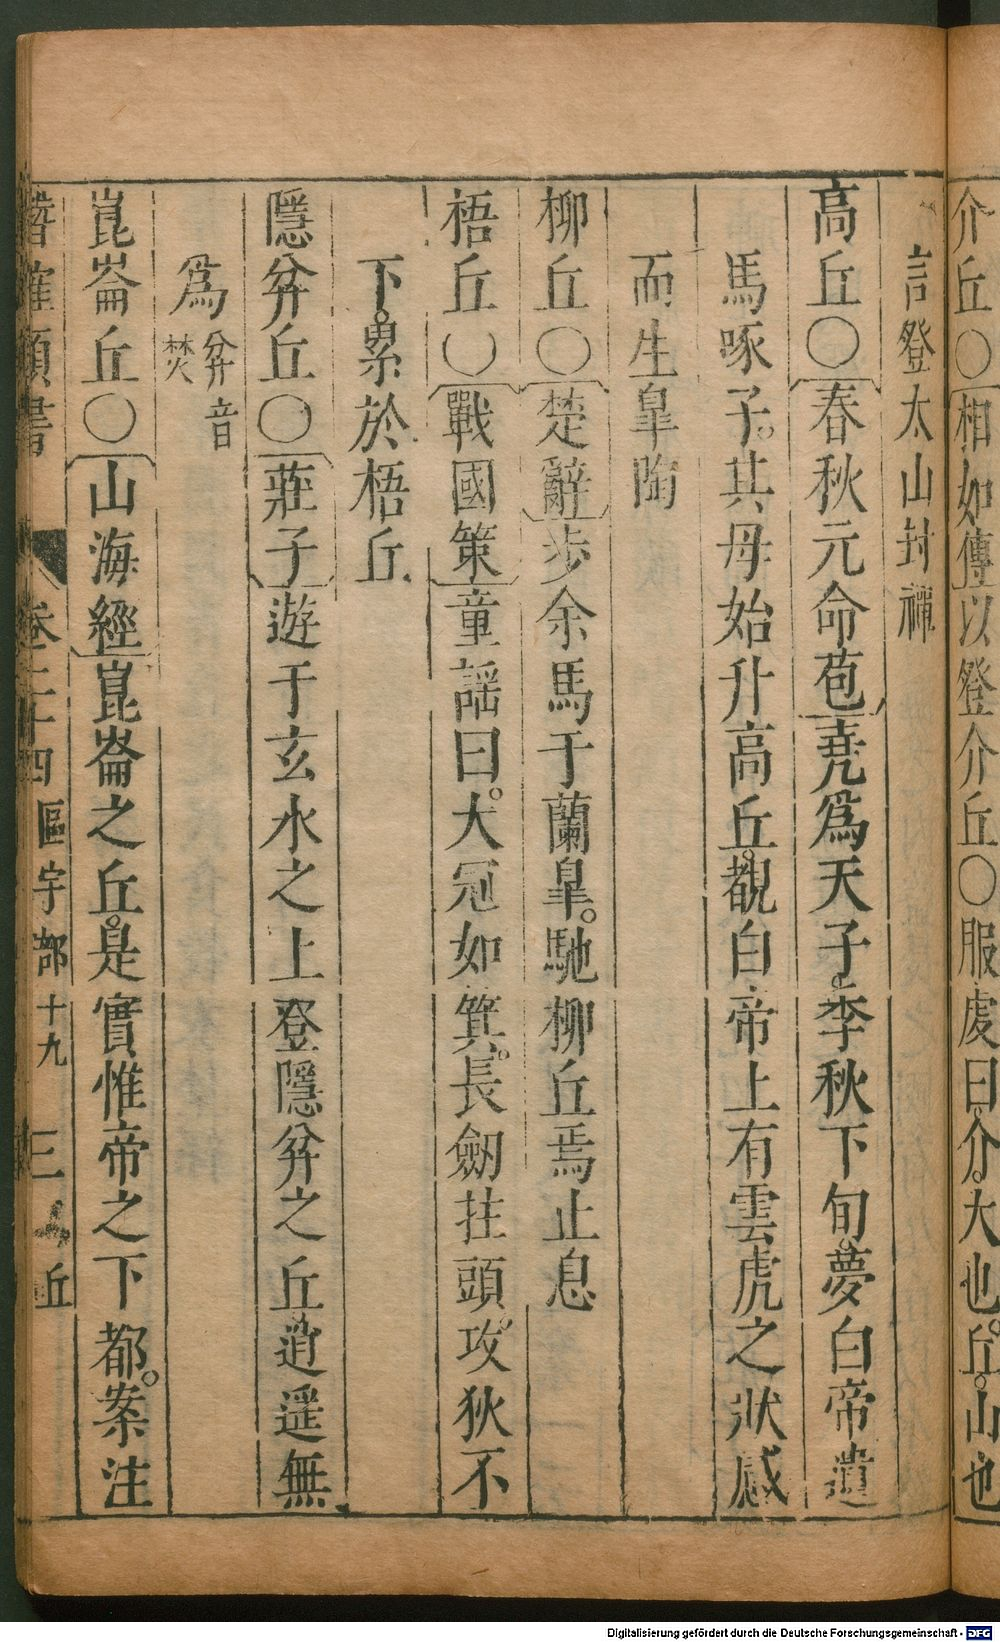 介丘〇相如傳以登介丘〇服虔曰介大也丘山也
言登太山封禪
高丘〇春秋元命苞堯爲天子季秋下旬夢白帝遺
馬啄子其母始升高丘覩白帝上有雲虎之狀感
而生臯陶
柳丘〇楚辭步余馬于蘭臯馳柳丘焉止息
梧丘〇戰國策童謡曰大冠如箕長劒拄頭攻狄不
下累於梧丘
隱弅丘〇莊子遊于玄水之上登隱弅之丘逍遥無
爲弅音焚
崑崙丘〇山海經崑崙之丘是實惟帝之下都案注
類書 卷二十四 區宇部十九 三 丘
Digitalisierung gefördert durch die Deutsche Forschungsgemeinschaft - DFG